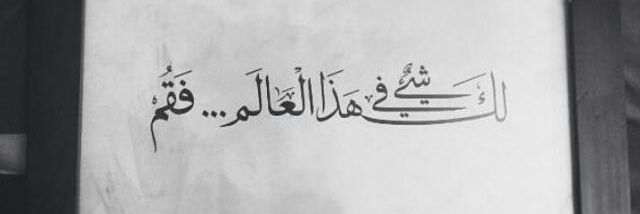 لكَ شيءٌ في هَذَا الْعَالَم... فَقُم